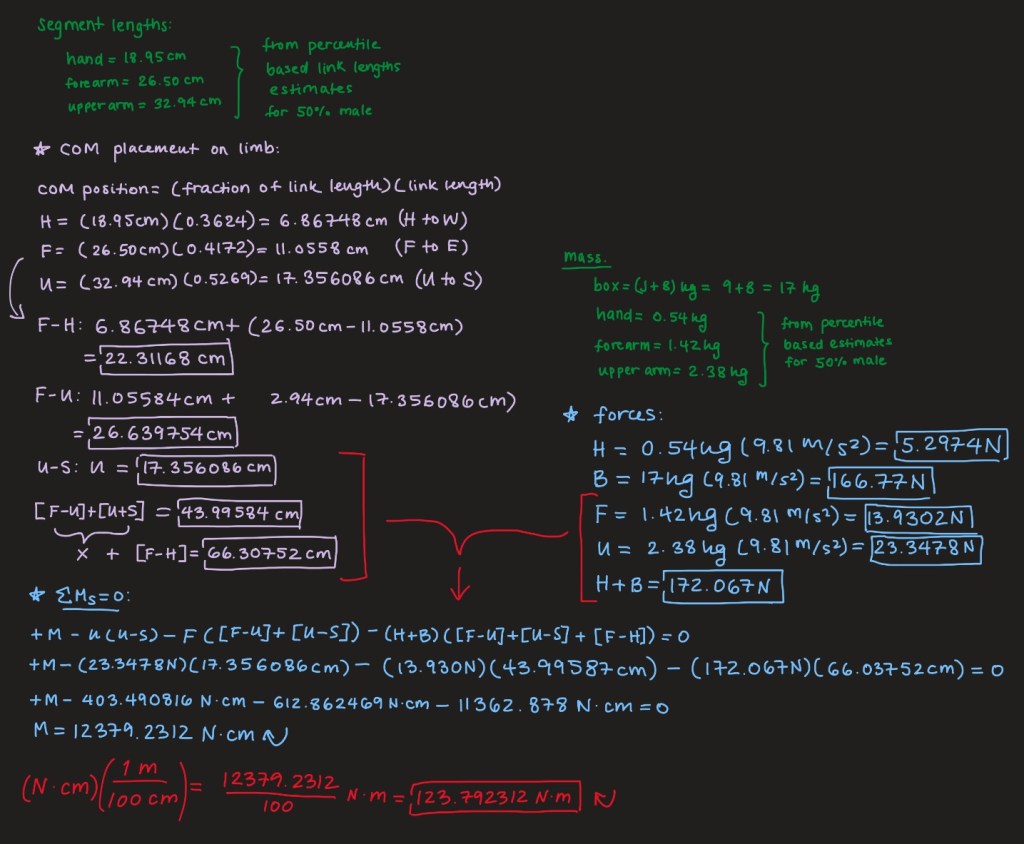 Segment lengths:
hand = 18.95 cm
forearm = 26.50 cm
upper arm = 32.94 cm
from percentile
based link lengths
estimates
for 50% male
☆ COM placement on limb:
COM position = (fraction of link length)(link length)
H = (18.95cm)(0.3624) = 6.86748 cm (H to W)
F = (26.50cm)(0.4172) = 11.0558 cm (F to E)
U = (32.94 cm)(0.5269) = 17.356086 cm (U to S)
F-H: 6.86748cm + (26.50cm - 11.0558cm)
= 22.31168 cm
F-U: 11.05584cm + 2.94cm - 17.356086cm)
= 26.639754cm
U-S: U = 17.356086 cm
[F-U]+[U+S] = 43.99584 cm
X + [F-H] = 66.30752 cm
mass.
box = (J+8) kg = 9+8 = 17 kg
hand = 0.54kg
forearm = 1.42kg
upper arm = 2.38 kg
from percentile
based estimates
for 50% male
☆ forces:
H = 0.54kg (9.81 m/s²) = 5.2974N
B = 17kg (9.81 m/s²) = 166.77N
F = 1.42kg (9.81 m/s²) = 13.9302N
U = 2.38 kg (9.81 m/s²) = 23.3478N
H+B = 172.067N
☆ ΣMs=0:
+M - U(U-S) - F([F-U]+[U-S]) - (H+B)([F-U]+[U-S]+[F-H]) = 0
+M - (23.3478N)(17.356086cm) - (13.930N)(43.99587cm) - (172.067N)(66.03752cm) = 0
+M - 403.490816 N·cm - 612.862469 N·cm - 11362.878 N·cm = 0
M = 12379.2312 N·cm
(N·cm)(1 m/100 cm) = 12379.2312/100 N·m = 123.792312 N·m